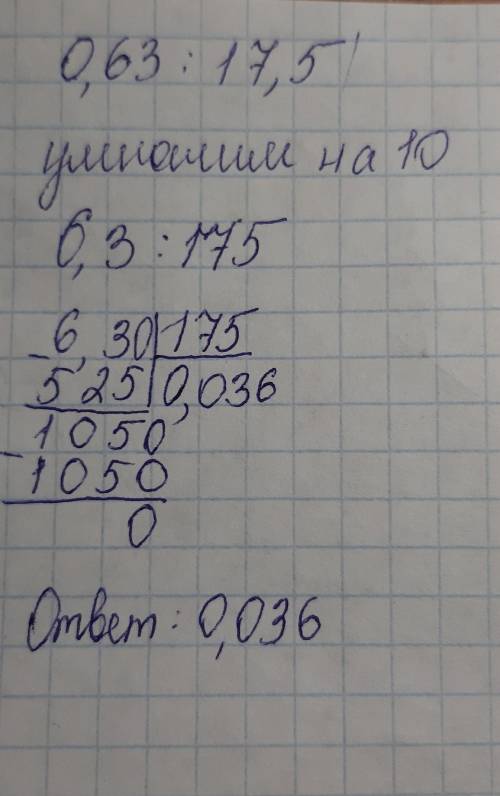 0,63 : 17,5
умножим на 10
6,3 : 175
6,30 | 175
- 525 | 0,036
1050
- 1050
0
Ответ: 0,036